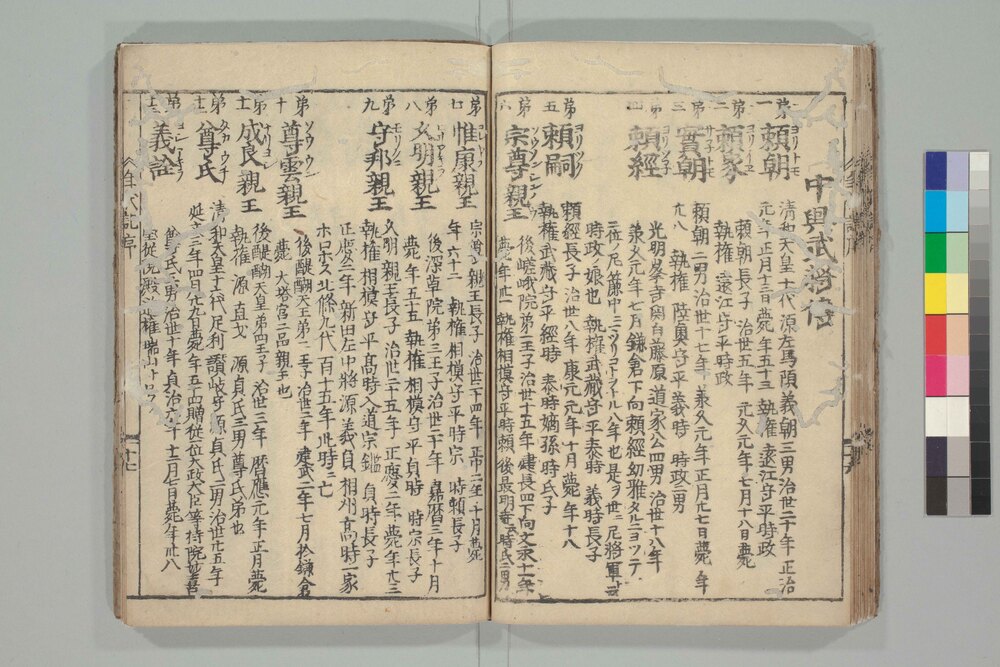 中興武將傳
第一 頼朝 ヨリトモ 清和天皇十代源左馬頭義朝三男治世二十年正治
元年正月十三日薨年五十三 執權遠江守平時政
第二 頼家 頼朝長子治世五年 元久元年七月十八日薨
執權遠江守平時政
第三 實朝 頼朝二男治世十七年 承久元年正月廿七日薨 年
廿八 執權 陸奥守平義時 時政二男
第四 頼經 光明峯寺関白藤原道家公四男 治世十八年
承久元年七月鎌倉下向頼經幼雅タルニヨツテ
二位ノ尼簾中ニテツリコトヲトル八年也是ヲ世ニ尼將軍云
時政ノ娘也 執權武藏守平泰時 義時長子
第五 頼嗣 頼經長子 治世八年 康元元年十月薨 年十八
執權武藏守平經時 泰時嫡孫時氏子
第六 宗尊親王 後嵯峨院第二王子治世十五年 建長四下向文永十一年
薨 年卅三 執權相模守平時頼 後最明寺 時氏二男
第七 惟康親王 宗尊親王長子 治世二十四年 正中二年十月薨
年六十二 執權相模守平時宗 時頼長子
第八 久明親王 後深草院第三王子治世二十年 嘉暦三年十月
薨 年五十五 執權相模守平貞時 時宗長子
第九 守邦親王 久明親王長子 治世二十五年 正慶二年薨年卅三
執權相模守平高時入道宗鑑 貞時長子
正慶二年 新田左中將源義貞相州高時一家
ホロホス北條九代 百十五年 此時ニ亡
第十 尊雲親王 ソウウン 後醍醐天皇第二王子治世二年 建武二年七月於鎌倉
薨 大塔宮二品親王也
第十一 成良親王 後醍醐天皇第四王子 治世三年 暦應元年正月薨
執權 源直義 源貞氏三男尊氏弟也
第十二 尊氏 タカウチ 清和天皇十六代足利讃岐守源貞氏二男治世廿五年
延文三年四月廿九日薨年五十四贈從一位太政大臣等持院
第十三 義詮 尊氏三男治世十年 貞治六年十二月七日薨年卅八